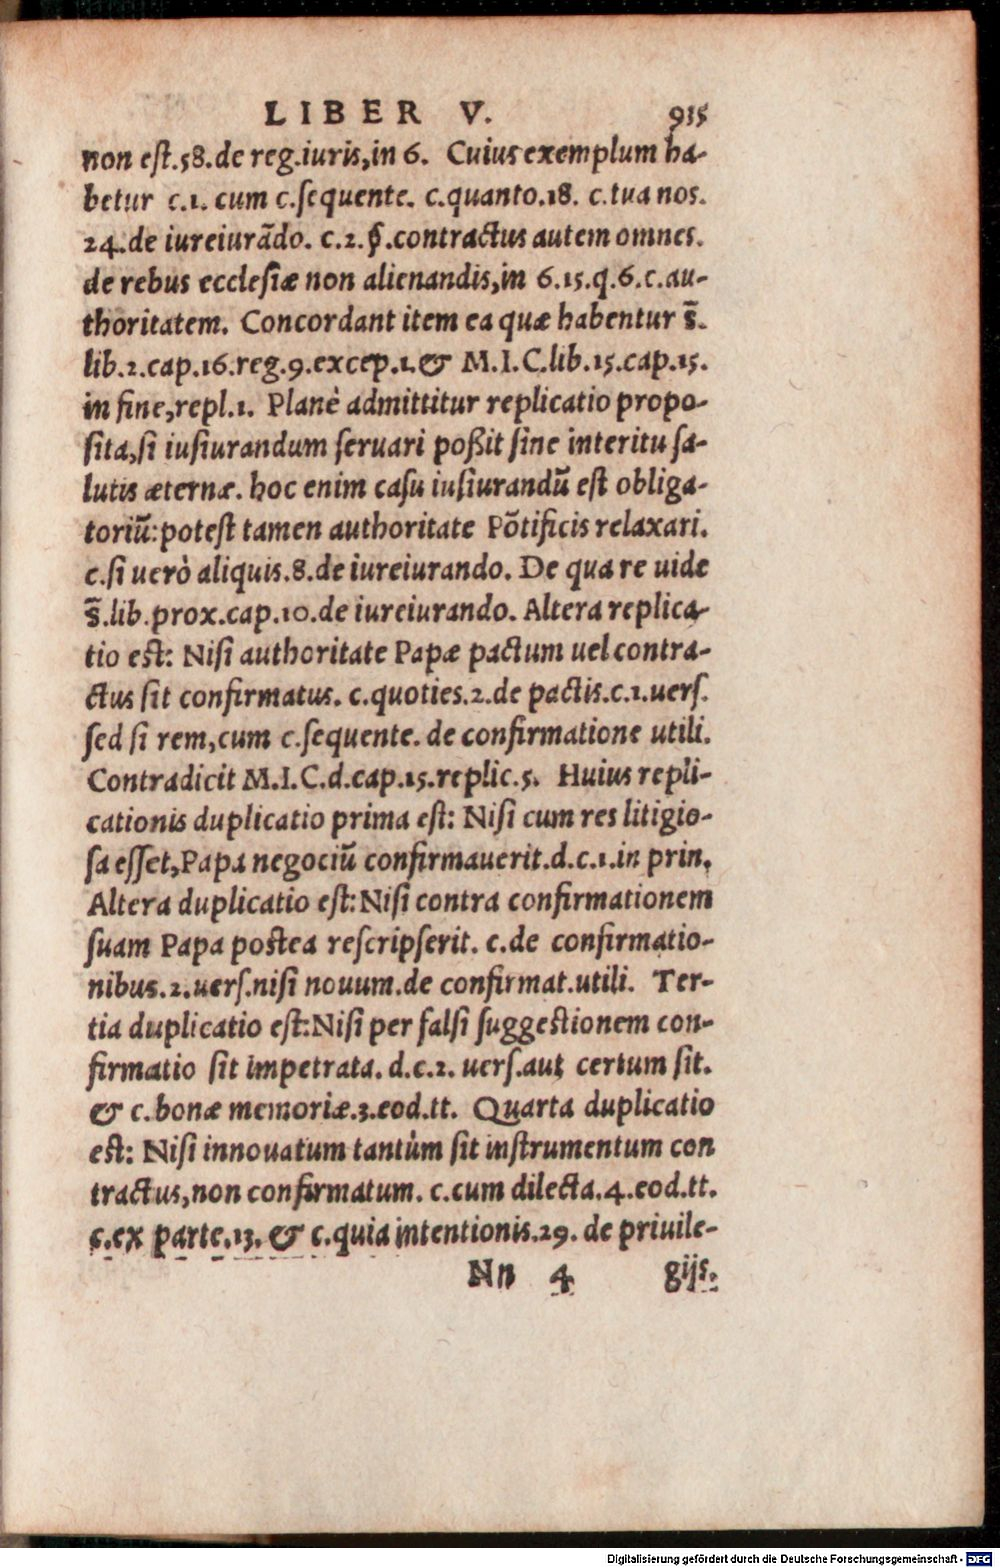 LIBER V. 915
non est.58.de reg.iuris,in 6. Cuius exemplum ha-
betur c.1. cum c.sequente. c.quanto.18. c.tua nos.
24.de iureiurãdo. c.2.§.contractus autem omnes.
de rebus ecclesiæ non alienandis,in 6.15.q.6.c.au-
thoritatem. Concordant item ea quæ habentur s̃.
lib.2.cap.16.reg.9.excep.1.& M.I.C.lib.15.cap.15.
in fine,repl.1. Planè admittitur replicatio propo-
sita,si iusiurandum seruari poßit sine interitu sa-
lutis æternæ. hoc enim casu iusiurandũ est obliga-
toriũ:potest tamen authoritate Põtificis relaxari.
c.si uerò aliquis.8.de iureiurando. De qua re uide
s̃.lib.prox.cap.10.de iureiurando. Altera replica-
tio est: Nisi authoritate Papæ pactum uel contra-
ctus sit confirmatus. c.quoties.2.de pactis.c.1.uers.
sed si rem,cum c.sequente. de confirmatione utili.
Contradicit M.I.C.d.cap.15.replic.5. Huius repli-
cationis duplicatio prima est: Nisi cum res litigio-
sa esset,Papa negociũ confirmauerit.d.c.1.in prin.
Altera duplicatio est:Nisi contra confirmationem
suam Papa postea rescripserit. c.de confirmatio-
nibus.2.uers.nisi nouum.de confirmat.utili. Ter-
tia duplicatio est:Nisi per falsi suggestionem con-
firmatio sit impetrata. d.c.2. uers.aut certum sit.
& c.bonæ memoriæ.3.eod.tt. Quarta duplicatio
est: Nisi innouatum tantùm sit instrumentum con
tractus,non confirmatum. c.cum dilecta.4.eod.tt.
c.ex parte.13. & c.quia intentionis.29. de priuile-
Nn 4 gijs.
Digitalisierung gefördert durch die Deutsche Forschungsgemeinschaft - DFG